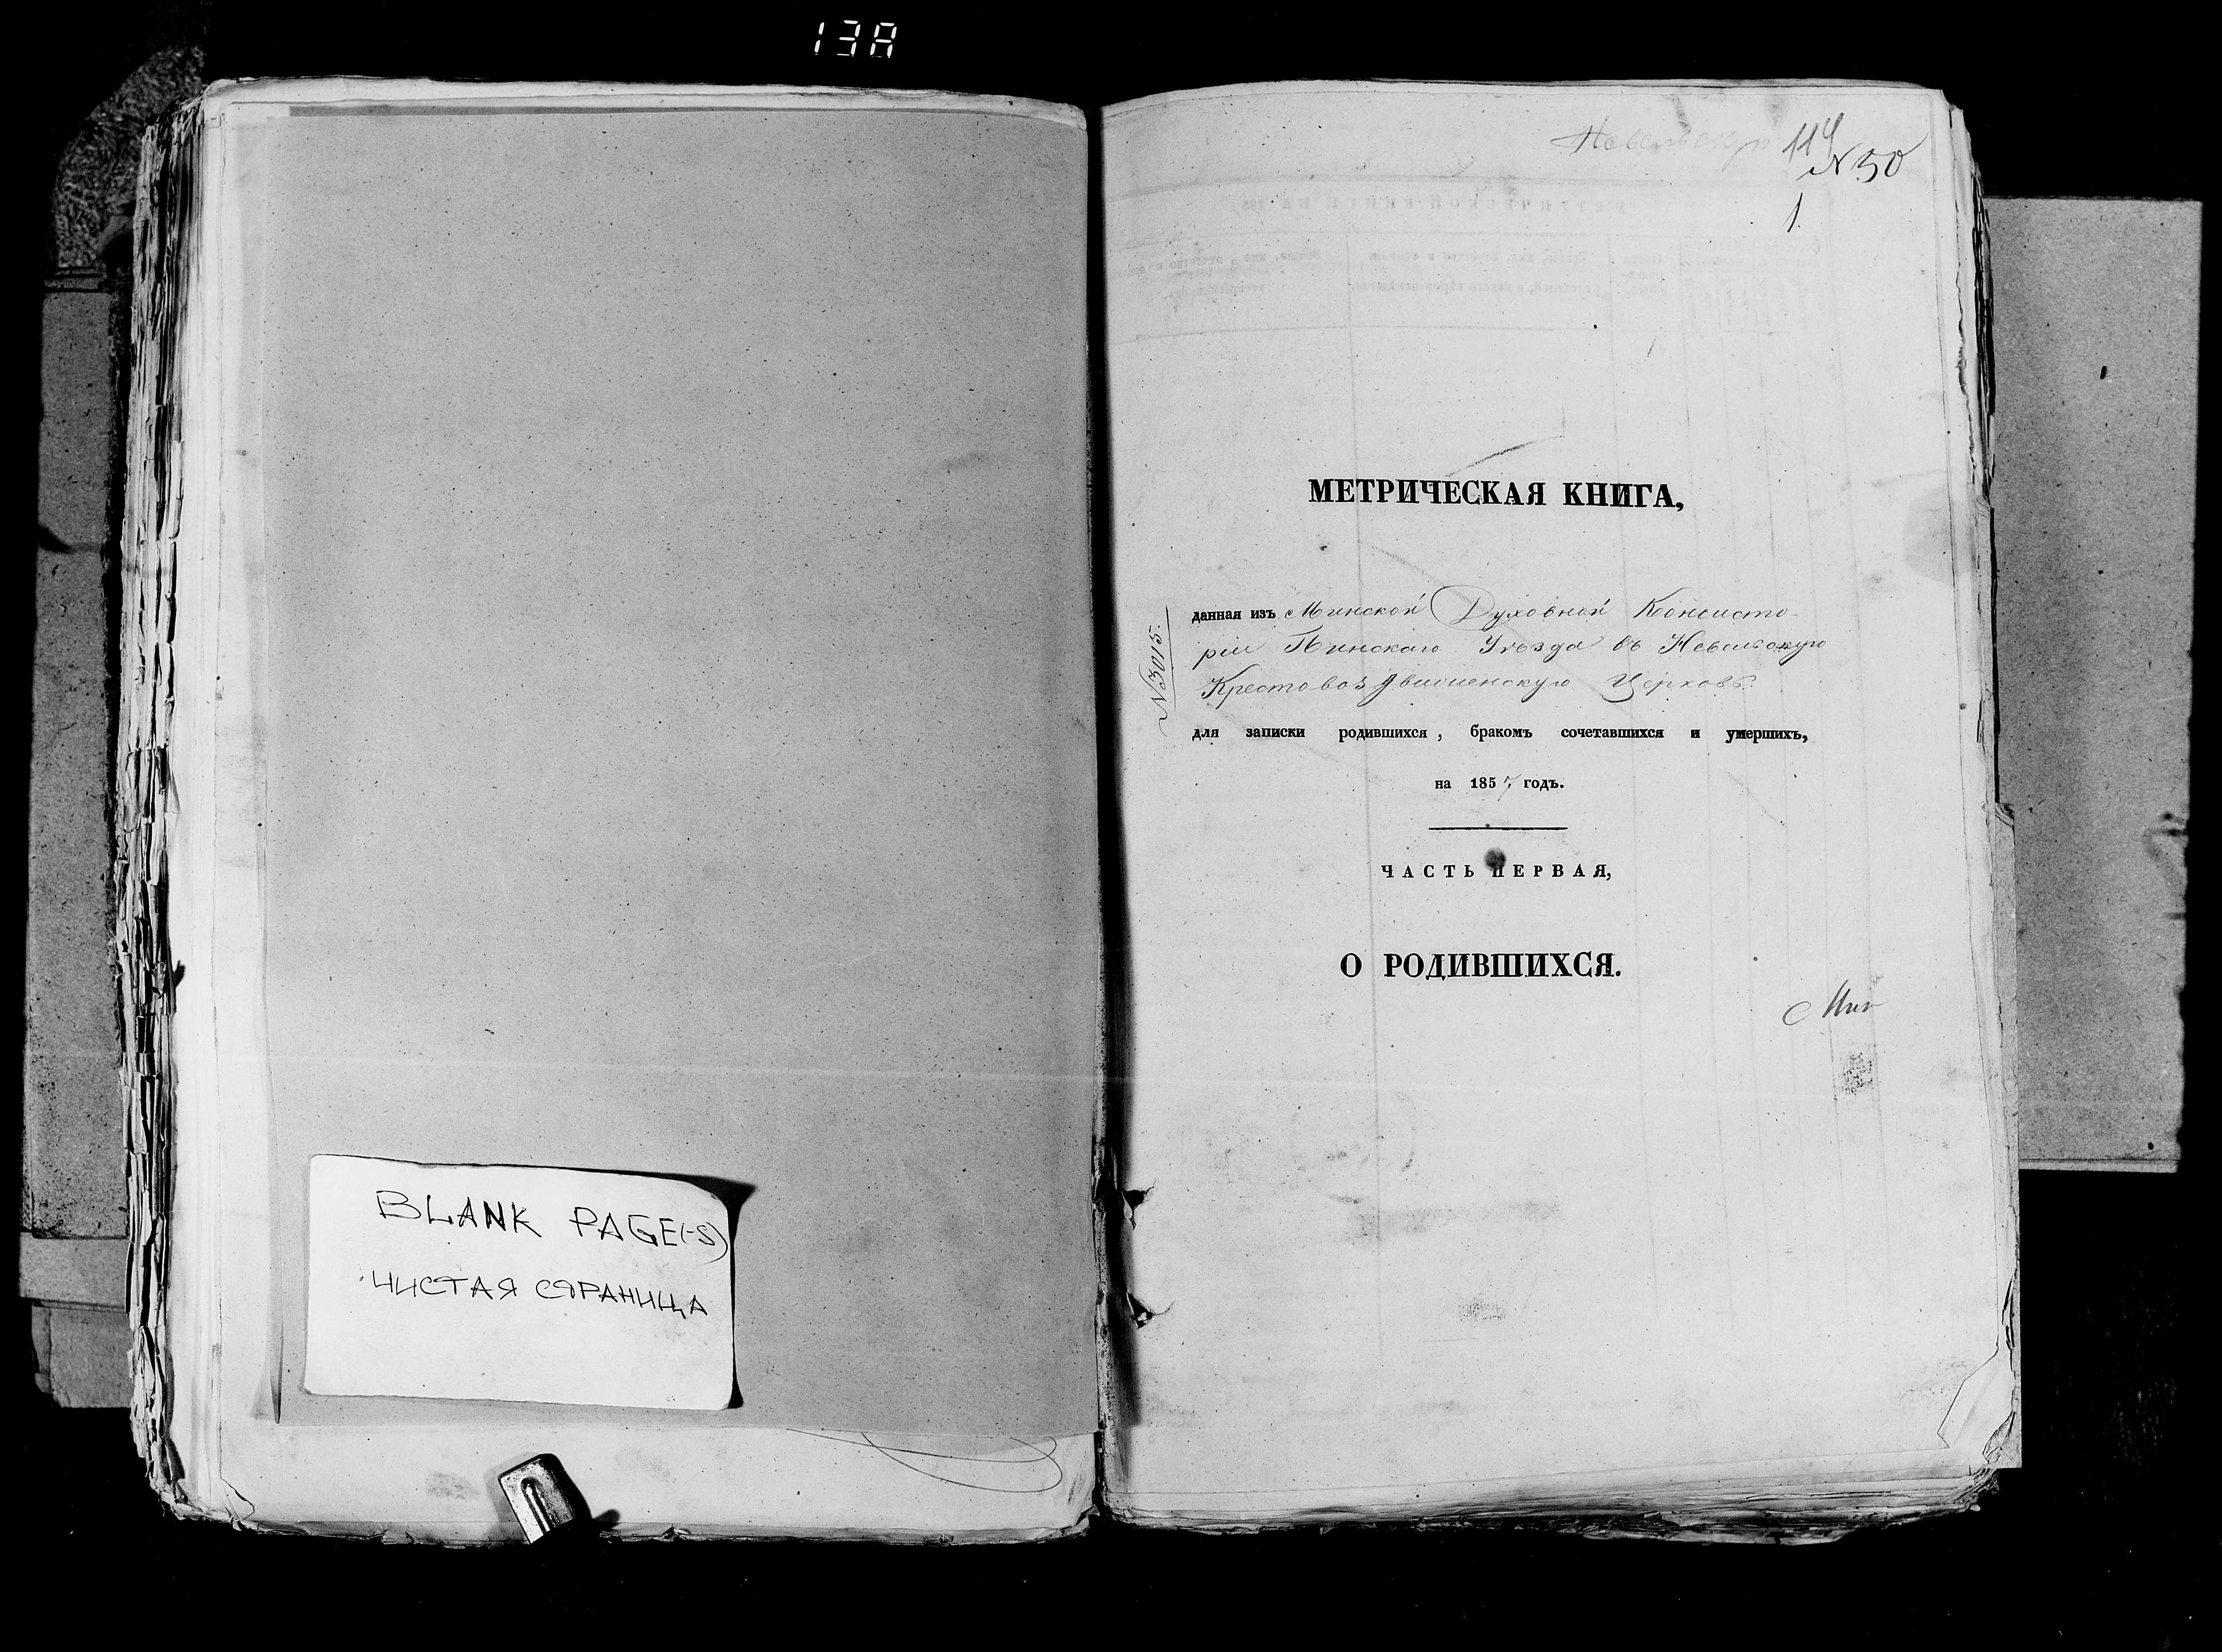 13A
BLANK PAGE(-S)
ЧИСТАЯ СТРАНИЦА
114
N 50
1
МЕТРИЧЕСКАЯ КНИГА,
N 3015.
данная изъ Минской Духовной Консисто-
ріи Пинскаго Уѣзда въ Невельскую
Крестовоздвиженскую Церковь.
для записки родившихся, бракомъ сочетавшихся и умершихъ,
на 1857 годъ.
ЧАСТЬ ПЕРВАЯ,
О РОДИВШИХСЯ.